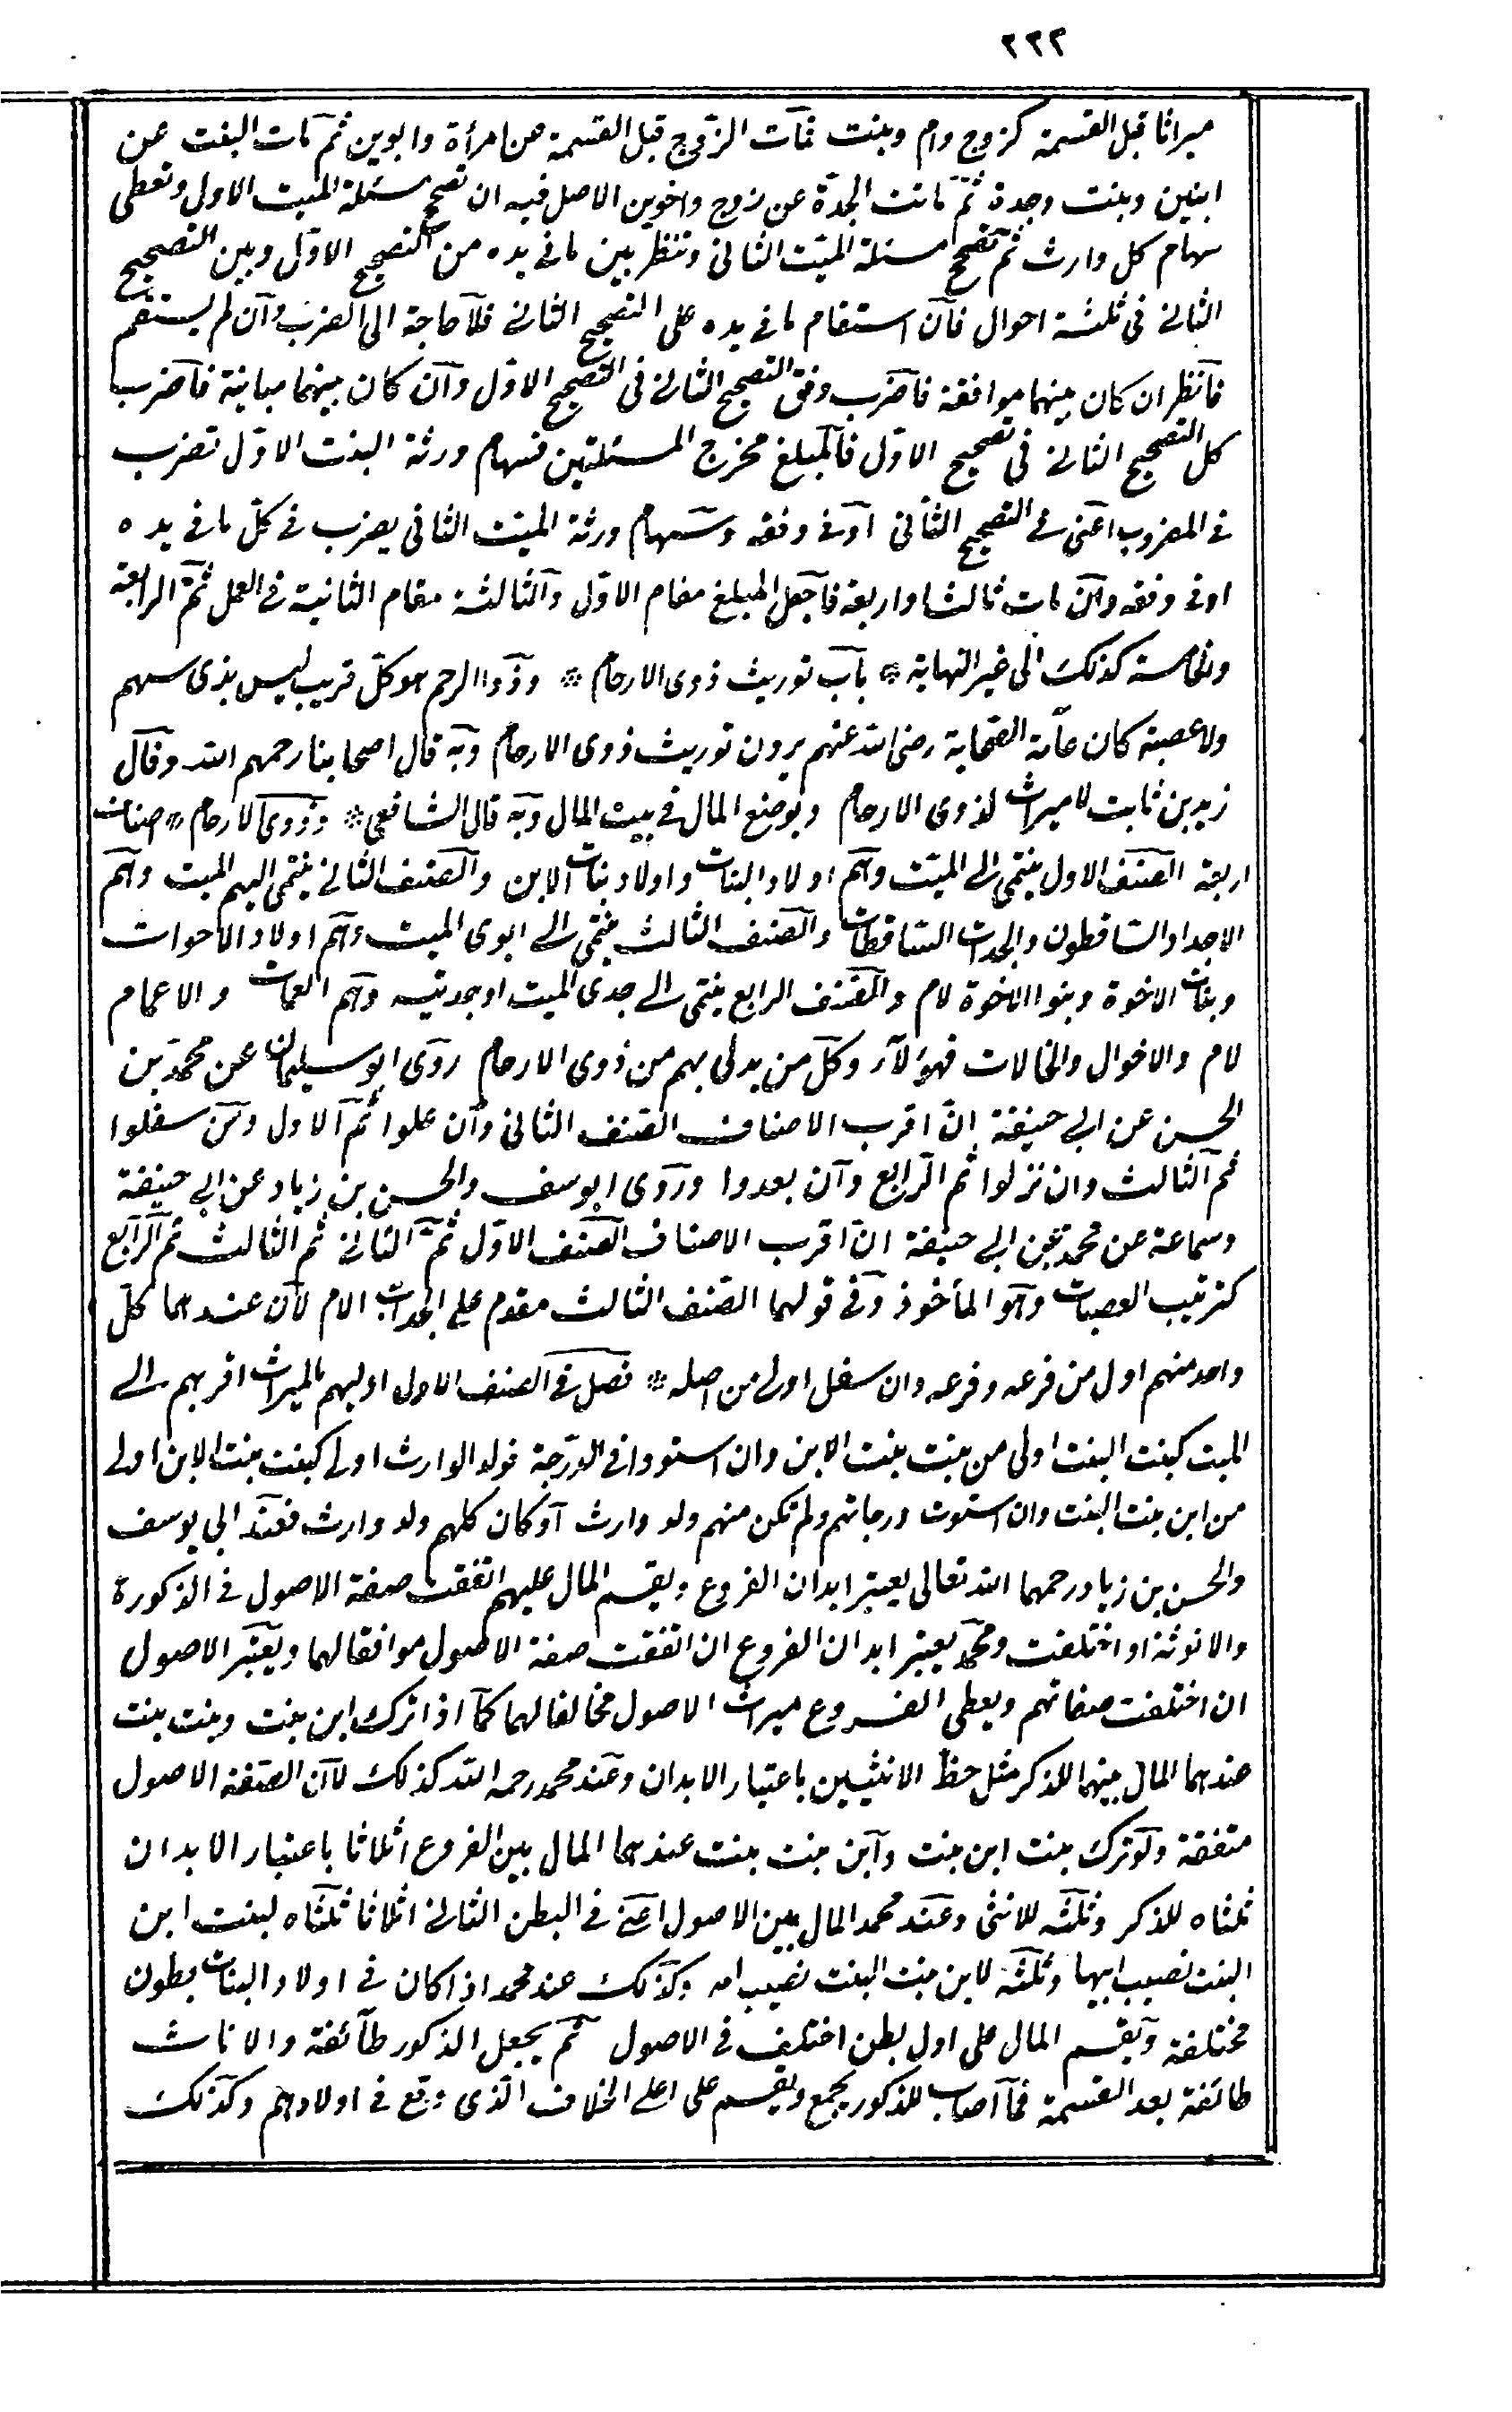 ٢٢٢
ميراثا قبل القسمة كزوج وام وبنت فمات الزوج قبل القسمة عن امرأة وابوين ثم مات البنت عن
ابنين وبنت وجدة ثم ماتت الجدة عن زوج واخوين الاصل فيه ان تصحح مسئلة الميت الاول وتعطى
سهام كل وارث ثم تصحح مسئلة الميت الثانى وتنظر بين ما فى يده من التصحيح الاول وبين التصحيح
الثانى فى ثلثة احوال فان استقام ما فى يده على التصحيح الثانى فلا حاجة الى الضرب وان لم يستقم
فانظر ان كان بينهما موافقة فاضرب وفق التصحيح الثانى فى التصحيح الاول وان كان بينهما مباينة فاضرب
كل التصحيح الثانى فى تصحيح الاول فالمبلغ مخرج المسئلتين فسهام ورثة البنت الاول تضرب
فى المضروب اعنى فى التصحيح الثانى او فى وفقه وسهام ورثة الميت الثانى يضرب فى كل ما فى يده
او فى وفقه وان مات ثالث او اربعة فاجعل المبلغ مقام الاول والثالثة مقام الثانية فى العمل ثم الرابعة
والخامسة كذلك الى غير النهاية * باب توريث ذوى الارحام * وذو الرحم هو كل قريب ليس بذى سهم
ولا عصبة كان عامة الصحابة رضى الله عنهم يرون توريث ذوى الارحام وبه قال اصحابنا رحمهم الله وقال
زيد بن ثابت لا ميراث لذوى الارحام ويوضع المال فى بيت المال وبه قال الشافعى * وذوى الارحام * اصناف
اربعة الصنف الاول ينتمى الى الميت وهم اولاد البنات واولاد بنات الابن والصنف الثانى ينتمى اليهم الميت وهم
الاجداد الساقطون والجدات الساقطات والصنف الثالث ينتمى الى ابوى الميت وهم اولاد الاخوات
وبنات الاخوة وبنوا الاخوة لام والصنف الرابع ينتمى الى جدى الميت او جدتيه وهم العمات والاعمام
لام والاخوال والخالات فهؤلاء وكل من يدلى بهم من ذوى الارحام روى ابو سليمان عن محمد بن
الحسن عن ابى حنيفة ان اقرب الاصناف الصنف الثانى وان علوا ثم الاول وان سفلوا
ثم الثالث وان نزلوا ثم الرابع وان بعدوا وروى ابو يوسف والحسن بن زياد عن ابى حنيفة
وسماعة عن محمد عن ابى حنيفة ان اقرب الاصناف الصنف الاول ثم الثانى ثم الثالث ثم الرابع
كترتيب العصبات وهو المأخوذ وفى قولهما الصنف الثالث مقدم على الجداب الام لان عندهما كل
واحد منهم اولى من فرعه وفرعه وان سفل اولى من اصله * فصل فى الصنف الاول اوليهم بالميراث اقربهم الى
الميت كبنت البنت اولى من بنت بنت الابن وان استووا فى الدرجة فولد الوارث اولى كبنت بنت الابن اولى
من ابن بنت البنت وان استوت درجاتهم ولم تكن منهم ولد وارث او كان كلهم ولد وارث فعند ابى يوسف
والحسن بن زياد رحمهما الله تعالى يعتبر ابدان الفروع ويقسم المال عليهم اتفقت صفة الاصول فى الذكورة
والانوثة او اختلفت ومحمد يعتبر ابدان الفروع ان اتفقت صفة الاصول موافقا لهما ويعتبر الاصول
ان اختلفت صفاتهم ويعطى الفروع ميراث الاصول مخالفا لهما كما اذا ترك ابن بنت وبنت بنت
عندهما المال بينهما للذكر مثل حظ الانثيين باعتبار الابدان وعند محمد رحمه الله كذلك لان الصفة الاصول
متفقة ولو ترك بنت ابن بنت وابن بنت بنت عندهما المال بين الفروع اثلاثا باعتبار الابدان
ثلثاه للذكر وثلثه للانثى وعند محمد المال بين الاصول اعنى فى البطن الثانى اثلاثا ثلثاه لبنت ابن
البنت نصيب ابيها وثلثه لابن بنت البنت نصيب امه وكذلك عند محمد اذا كان فى اولاد البنات بطون
مختلفة ويقسم المال على اول بطن اختلف فى الاصول ثم يجعل الذكور طائفة والاناث
طائفة بعد القسمة فما اصاب للذكور يجمع ويقسم على اعلى الخلاف الذى وقع فى اولادهم وكذلك